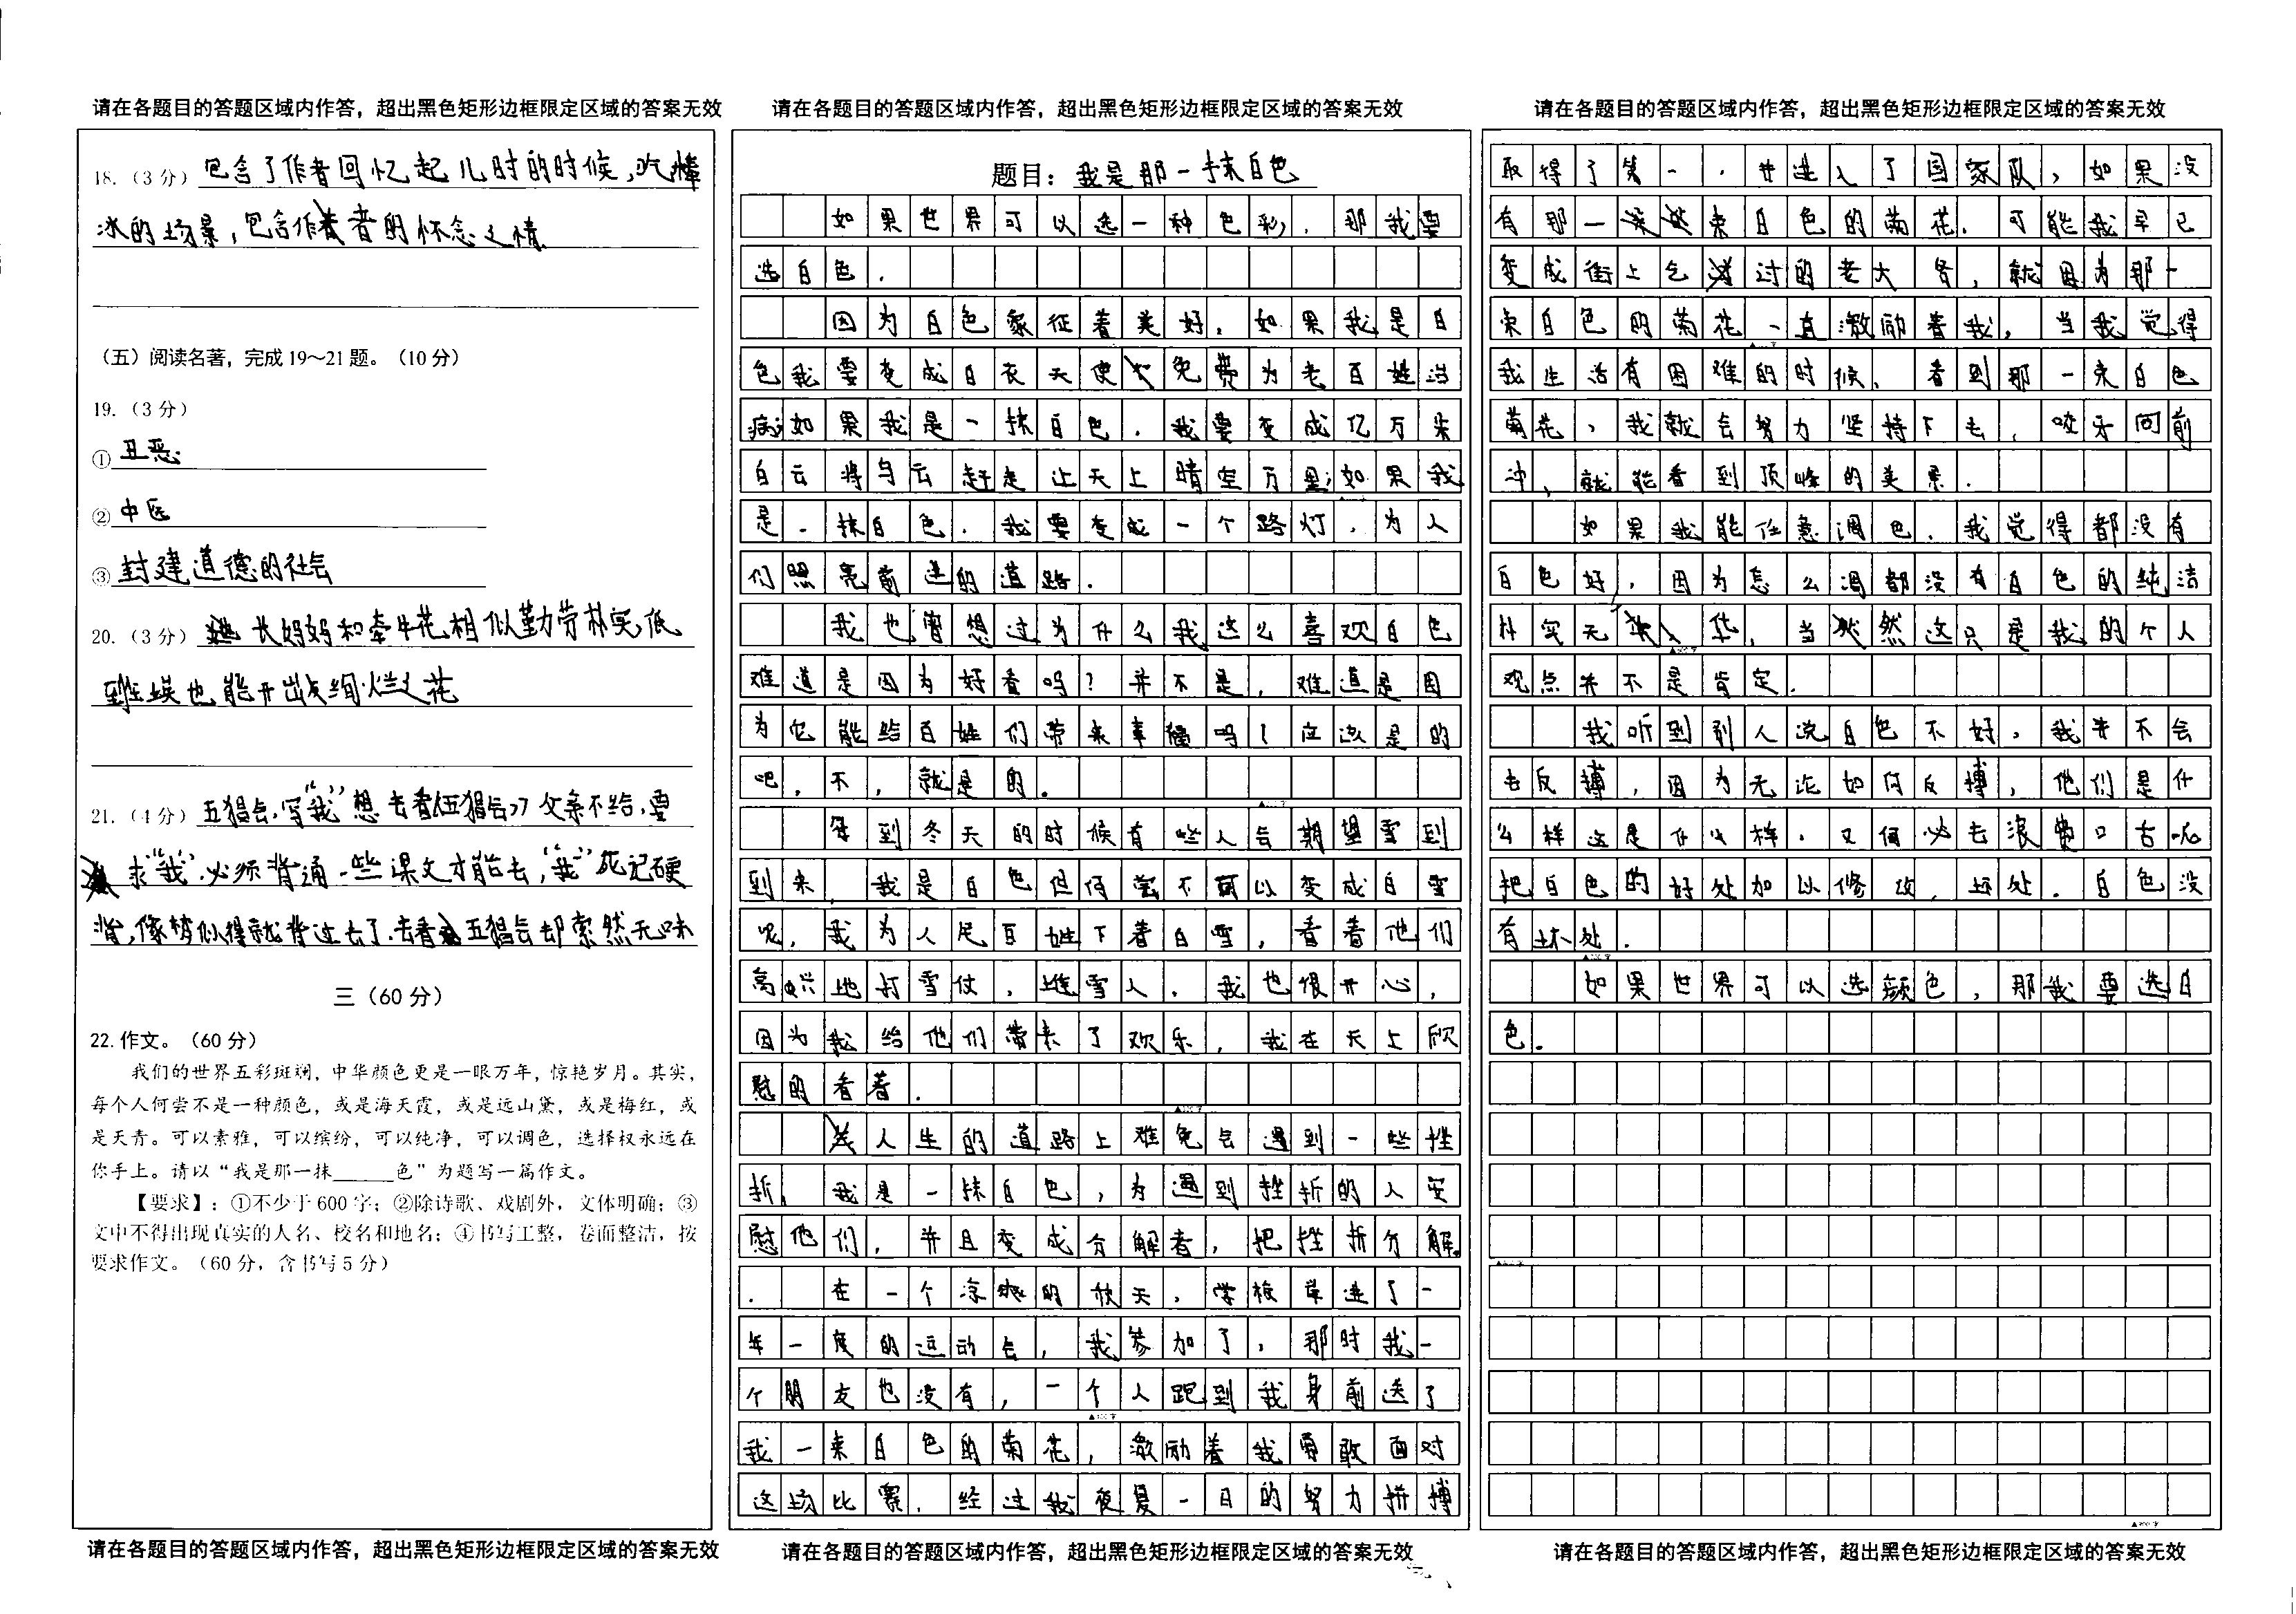 请在各题目的答题区域内作答，超出黑色矩形边框限定区域的答案无效
18.（3分）包含了作者回忆起儿时的时候，吃棒
冰的场景，包含作者的怀念之情
（五）阅读名著，完成19～21题。（10分）
19.（3分）
①丑恶
②中医
③封建道德的社会
20.（3分）长妈妈和牵牛花相似勤劳朴实低
到尘埃也能开出绚烂之花
21.（4分）五猖会，写“我”想去看《五猖会》父亲不给，要
求“我”必须背诵一些课文才能去，“我”死记硬
背，像梦似得就背过去了.去看五猖会却索然无味
三（60分）
22.作文。（60分）
我们的世界五彩斑斓，中华颜色更是一眼万年，惊艳岁月。其实，
每个人何尝不是一种颜色，或是海天霞，或是远山黛，或是梅红，或
是天青。可以素雅，可以缤纷，可以纯净，可以调色，选择权永远在
你手上。请以“我是那一抹______色”为题写一篇作文。
【要求】：①不少于600字；②除诗歌、戏剧外，文体明确；③
文中不得出现真实的人名、校名和地名；④书写工整，卷面整洁，按
要求作文。（60分，含书写5分）
请在各题目的答题区域内作答，超出黑色矩形边框限定区域的答案无效
请在各题目的答题区域内作答，超出黑色矩形边框限定区域的答案无效
题目：我是那一抹白色
如果世界可以选一种色彩，那我要
选白色.
因为白色象征着美好，如果我是白
色我要变成白衣天使免费为老百姓治
病；如果我是一抹白色，我要变成亿万朵
白云将乌云赶走让天上晴空万里；如果我
是一抹白色，我要变成一个路灯，为人
们照亮前进的道路.
我也曾想过为什么我这么喜欢白色
难道是因为好看吗？并不是，难道是因
为它能给百姓们带来幸福吗！应该是的
吧，不，就是的.
每到冬天的时候有些人会期望雪到
到来，我是白色但何尝不可以变成白雪
呢，我为人民百姓下着白雪，看着他们
高兴地打雪仗，堆雪人，我也很开心，
因为我给他们带来了欢乐，我在天上欣
慰的看着.
人生的道路上难免会遇到一些挫
折，我是一抹白色，为遇到挫折的人安
慰他们，并且变成分解者，把挫折分解
.在一个凉爽的秋天，学校举进了一
年一度的运动会，我参加了，那时我一
个朋友也没有，一个人跑到我身前送了
我一束白色的菊花，激励着我勇敢面对
这场比赛，经过我夜复一日的努力拼搏
请在各题目的答题区域内作答，超出黑色矩形边框限定区域的答案无效
请在各题目的答题区域内作答，超出黑色矩形边框限定区域的答案无效
取得了第一，并进入了国家队，如果没
有那一束白色的菊花，可能我早已
变成街上乞讨的老大爷，就因为那一
束白色的菊花一直激励着我，当我觉得
我生活有困难的时候，看到那一束白色
菊花，我就会努力坚持下去，咬牙向前
冲，就能看到顶峰的美景.
如果我能任意调色，我觉得都没有
白色好，因为怎么调都没有白色的纯洁
朴实无华，当然这只是我的个人
观点并不是肯定.
我听到别人说白色不好，我并不会
去反搏，因为无论如何反搏，他们是什
么样这是什么样，又何必去浪费口舌呢
把白色的好处加以修改，坏处，白色没
有坏处.
如果世界可以选颜色，那我要选白
色.
请在各题目的答题区域内作答，超出黑色矩形边框限定区域的答案无效